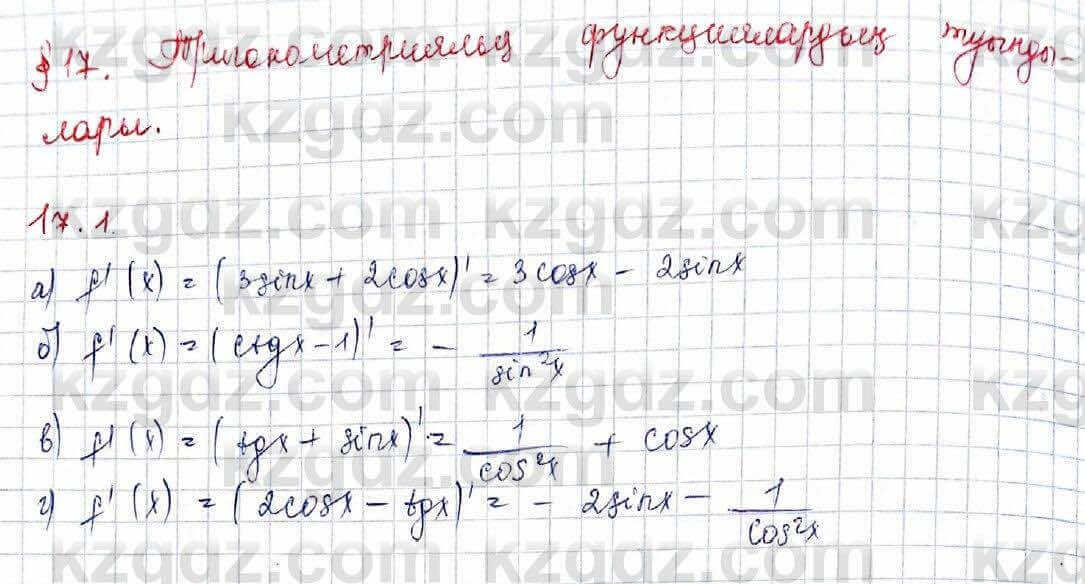 § 17. Тригонометриялық функциялардың туынды-
лары.
17.1.
а) f'(x) = (3sinx + 2cosx)' = 3cosx - 2sinx
б) f'(x) = (ctgx - 1)' = - 1/sin²x
в) f'(x) = (tgx + sinx)' = 1/cos²x + cosx
г) f'(x) = (2cosx - tgx)' = - 2sinx - 1/cos²x
kzgdz.com